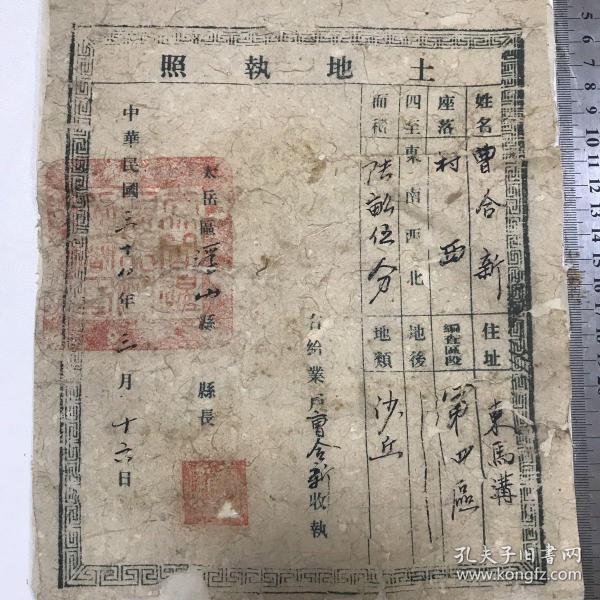 土地執照
姓名 曹合新 住址 東馬溝
座落 村西 編查區段 第四區
四至 東 南 西 北 地後
面積 陸畝伍分 地類 沙丘
右給業戶曹合新收執
太岳區 浮山縣 縣長
中華民國三十八年三月十六日
孔夫子旧书网
www.kongfz.com
5
6
7
8
9